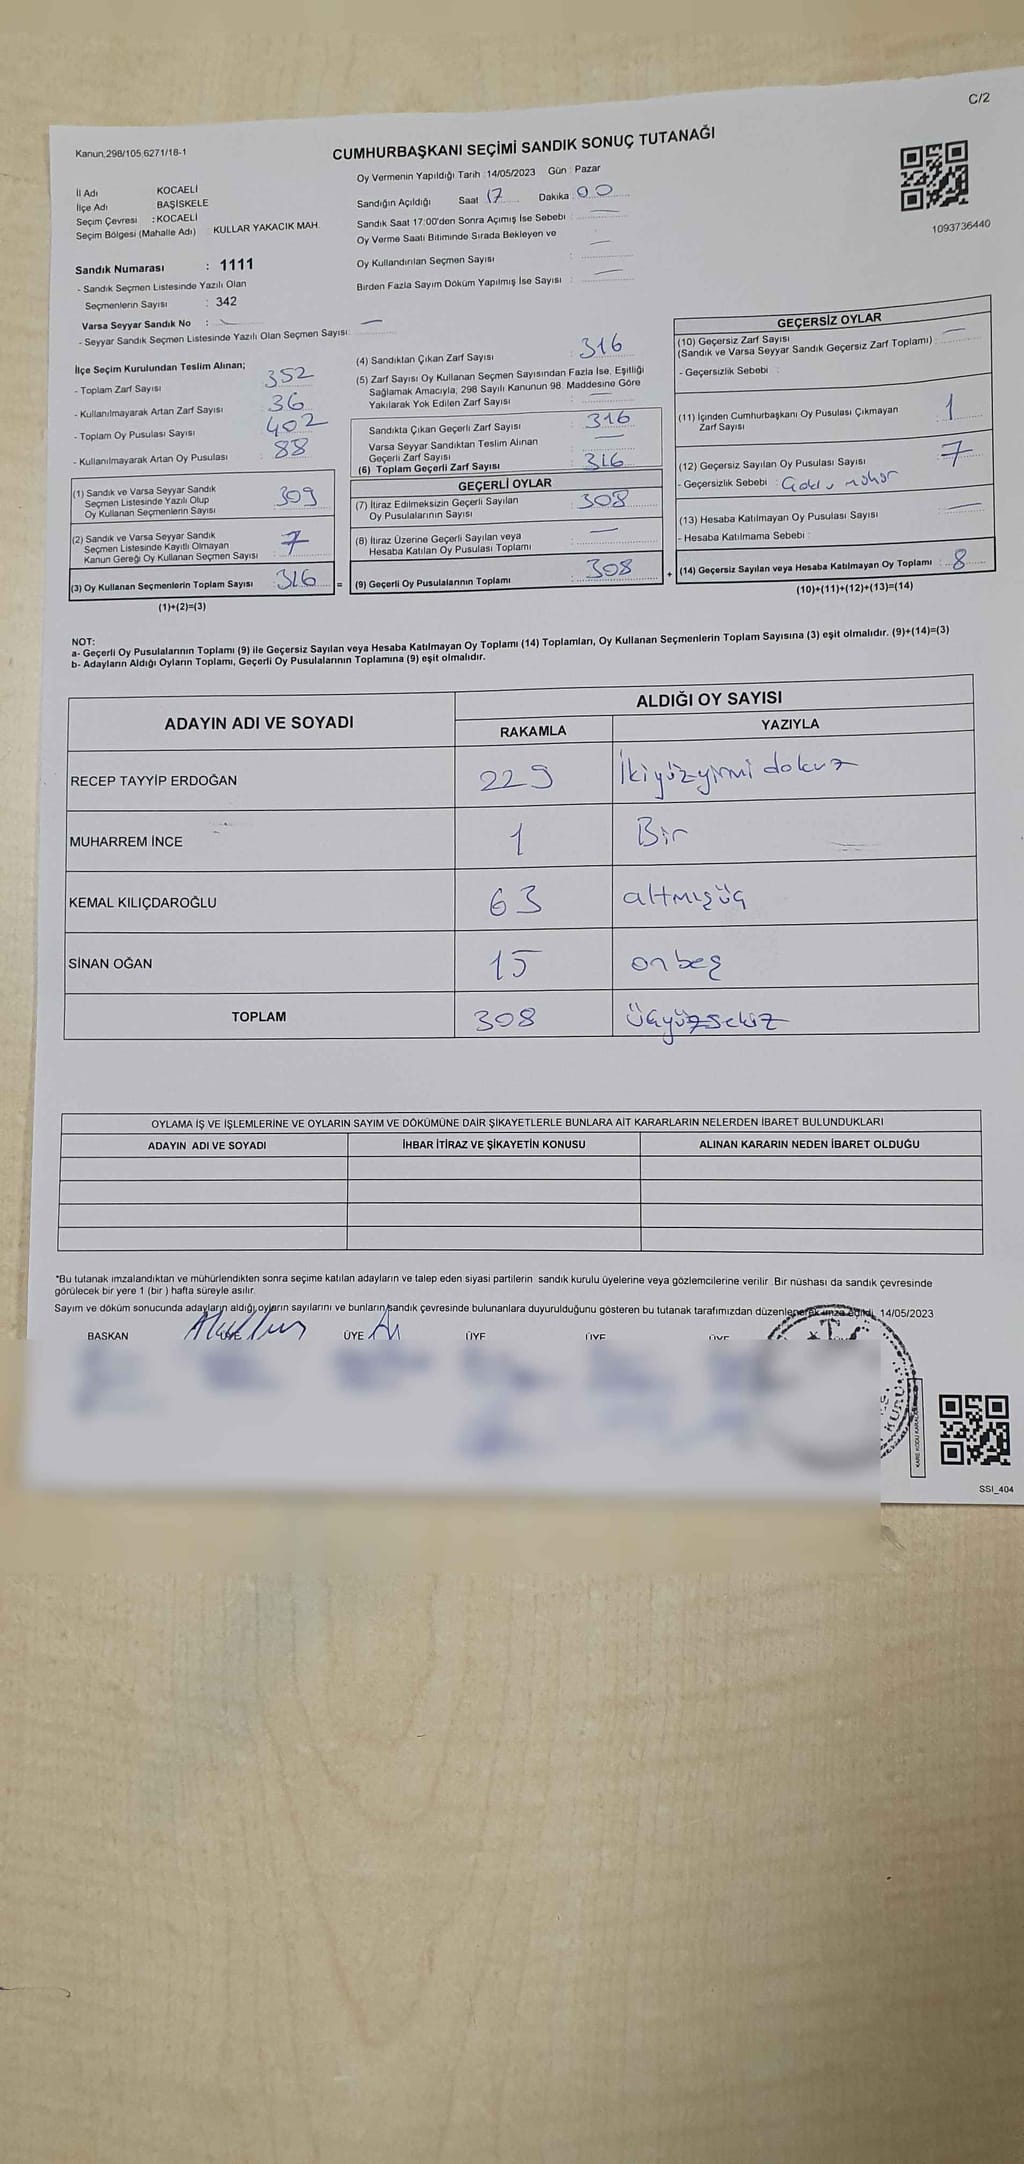 C/2
Kanun,298/105,6271/18-1
CUMHURBAŞKANI SEÇİMİ SANDIK SONUÇ TUTANAĞI
1093736440
İl Adı KOCAELİ
İlçe Adı BAŞİSKELE
Seçim Çevresi : KOCAELİ
Seçim Bölgesi (Mahalle Adı) : KULLAR YAKACIK MAH.
Sandık Numarası : 1111
- Sandık Seçmen Listesinde Yazılı Olan
Seçmenlerin Sayısı : 342
Varsa Seyyar Sandık No :
- Seyyar Sandık Seçmen Listesinde Yazılı Olan Seçmen Sayısı:
Oy Vermenin Yapıldığı Tarih : 14/05/2023 Gün : Pazar
Sandığın Açıldığı Saat 17 Dakika 00
Sandık Saat 17:00'den Sonra Açımış İse Sebebi :
Oy Verme Saati Bitiminde Sırada Bekleyen ve
Oy Kullandırılan Seçmen Sayısı :
Birden Fazla Sayım Döküm Yapılmış İse Sayısı :
İlçe Seçim Kurulundan Teslim Alınan;
- Toplam Zarf Sayısı 352
- Kullanılmayarak Artan Zarf Sayısı 36
- Toplam Oy Pusulası Sayısı 402
- Kullanılmayarak Artan Oy Pusulası 88
(1) Sandık ve Varsa Seyyar Sandık
Seçmen Listesinde Yazılı Olup
Oy Kullanan Seçmenlerin Sayısı 309
(2) Sandık ve Varsa Seyyar Sandık
Seçmen Listesinde Kayıtlı Olmayan
Kanun Gereği Oy Kullanan Seçmen Sayısı 7
(3) Oy Kullanan Seçmenlerin Toplam Sayısı 316 =
(1)+(2)=(3)
(4) Sandıktan Çıkan Zarf Sayısı : 316
(5) Zarf Sayısı Oy Kullanan Seçmen Sayısından Fazla İse, Eşitliği
Sağlamak Amacıyla, 298 Sayılı Kanunun 98. Maddesine Göre
Yakılarak Yok Edilen Zarf Sayısı :
Sandıkta Çıkan Geçerli Zarf Sayısı : 316
Varsa Seyyar Sandıktan Teslim Alınan
Geçerli Zarf Sayısı
(6) Toplam Geçerli Zarf Sayısı : 316
GEÇERLİ OYLAR
(7) İtiraz Edilmeksizin Geçerli Sayılan
Oy Pusulalarının Sayısı : 308
(8) İtiraz Üzerine Geçerli Sayılan veya
Hesaba Katılan Oy Pusulası Toplamı :
(9) Geçerli Oy Pusulalarının Toplamı : 308 +
GEÇERSİZ OYLAR
(10) Geçersiz Zarf Sayısı
(Sandık ve Varsa Seyyar Sandık Geçersiz Zarf Toplamı) :
- Geçersizlik Sebebi :
(11) İçinden Cumhurbaşkanı Oy Pusulası Çıkmayan
Zarf Sayısı : 1
(12) Geçersiz Sayılan Oy Pusulası Sayısı : 7
- Geçersizlik Sebebi :
(13) Hesaba Katılmayan Oy Pusulası Sayısı :
- Hesaba Katılmama Sebebi :
(14) Geçersiz Sayılan veya Hesaba Katılmayan Oy Toplamı : 8
(10)+(11)+(12)+(13)=(14)
NOT:
a- Geçerli Oy Pusulalarının Toplamı (9) ile Geçersiz Sayılan veya Hesaba Katılmayan Oy Toplamı (14) Toplamları, Oy Kullanan Seçmenlerin Toplam Sayısına (3) eşit olmalıdır. (9)+(14)=(3)
b- Adayların Aldığı Oyların Toplamı, Geçerli Oy Pusulalarının Toplamına (9) eşit olmalıdır.
ADAYIN ADI VE SOYADI ALDIĞI OY SAYISI
RAKAMLA YAZIYLA
RECEP TAYYİP ERDOĞAN 229 İkiyüzyirmi dokuz
MUHARREM İNCE 1 Bir
KEMAL KILIÇDAROĞLU 63 altmışüç
SİNAN OĞAN 15 onbeş
TOPLAM 308 üçyüzsekiz
OYLAMA İŞ VE İŞLEMLERİNE VE OYLARIN SAYIM VE DÖKÜMÜNE DAİR ŞİKAYETLERLE BUNLARA AİT KARARLARIN NELERDEN İBARET BULUNDUKLARI
ADAYIN ADI VE SOYADI İHBAR İTİRAZ VE ŞİKAYETİN KONUSU ALINAN KARARIN NEDEN İBARET OLDUĞU
*Bu tutanak imzalandıktan ve mühürlendikten sonra seçime katılan adayların ve talep eden siyasi partilerin sandık kurulu üyelerine veya gözlemcilerine verilir. Bir nüshası da sandık çevresinde
görülecek bir yere 1 (bir ) hafta süreyle asılır.
Sayım ve döküm sonucunda adayların aldığı oyların sayılarını ve bunların sandık çevresinde bulunanlara duyurulduğunu gösteren bu tutanak tarafımızdan düzenlenerek imza edildi. 14/05/2023
BAŞKAN ÜYE ÜYE ÜYE ÜYE ÜYE
SSI_404